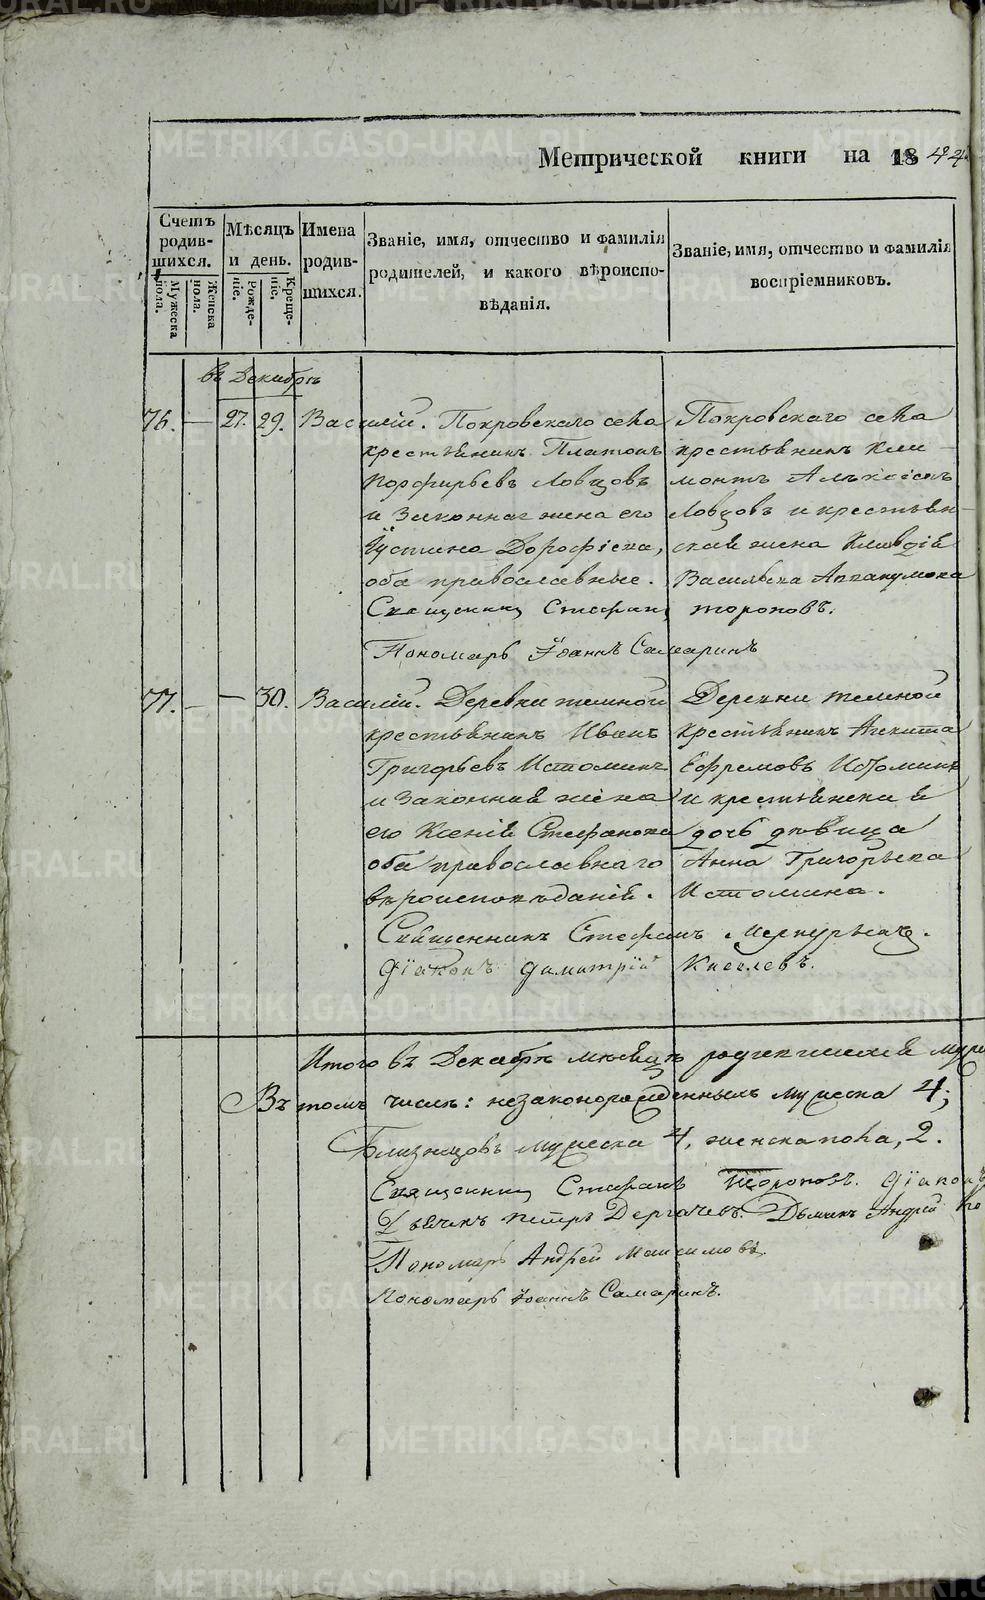 Метрической книги на 1844
Счетъ родив-шихся.
Мужеска пола.
Женска пола.
Мѣсяцъ и день.
Рожде-ніе.
Креще-ніе.
Имена родив-шихся.
Званіе, имя, отчество и фамилія
родителей, и какого вѣроиспо-
вѣданія.
Званіе, имя, отчество и фамилія
воспріемниковъ.
въ Декабрѣ
76. — 27. 29. Василій. Покровскаго села
крестьянинъ Платонъ
Порфирьевъ Ловцовъ
и Законная жена его
Іустина Дорофіева,
оба православные.
Покровскаго села
крестьянинъ Кли-
монтъ Алексіевъ
Ловцовъ и крестьян-
ская жена Клавдія
Васильева Аввакумова
Священникъ Стефанъ Тороповъ.
Пономарь Іоаннъ Самаринъ
77. — — 30. Василій. Деревни темной
крестьянинъ Иванъ
Григорьевъ Истоминъ
и Законная жена
его Ксенія Стефанова
оба православнаго
вѣроисповѣданія.
Деревни темной
крестьянинъ Никита
Ефремовъ Истоминъ
и крестьянская
дочь дѣвица
Анна Григорьева
Истомина.
Священникъ Стефанъ Меркурьевъ.
Діаконъ Димитрій Киселевъ.
Итого въ Декабрѣ мѣсяцѣ родившихся
Въ томъ числѣ: незаконорожденныхъ мужеска 4;
Близнецовъ мужеска 4, женска пола, 2.
Священникъ Стефанъ Тороповъ. Діаконъ
Дьячекъ Петръ Дергачевъ. Дьячекъ Андрей
Пономарь Андрей Максимовъ.
Пономарь Іоаннъ Самаринъ.
METRIKI.GASO-URAL.RU